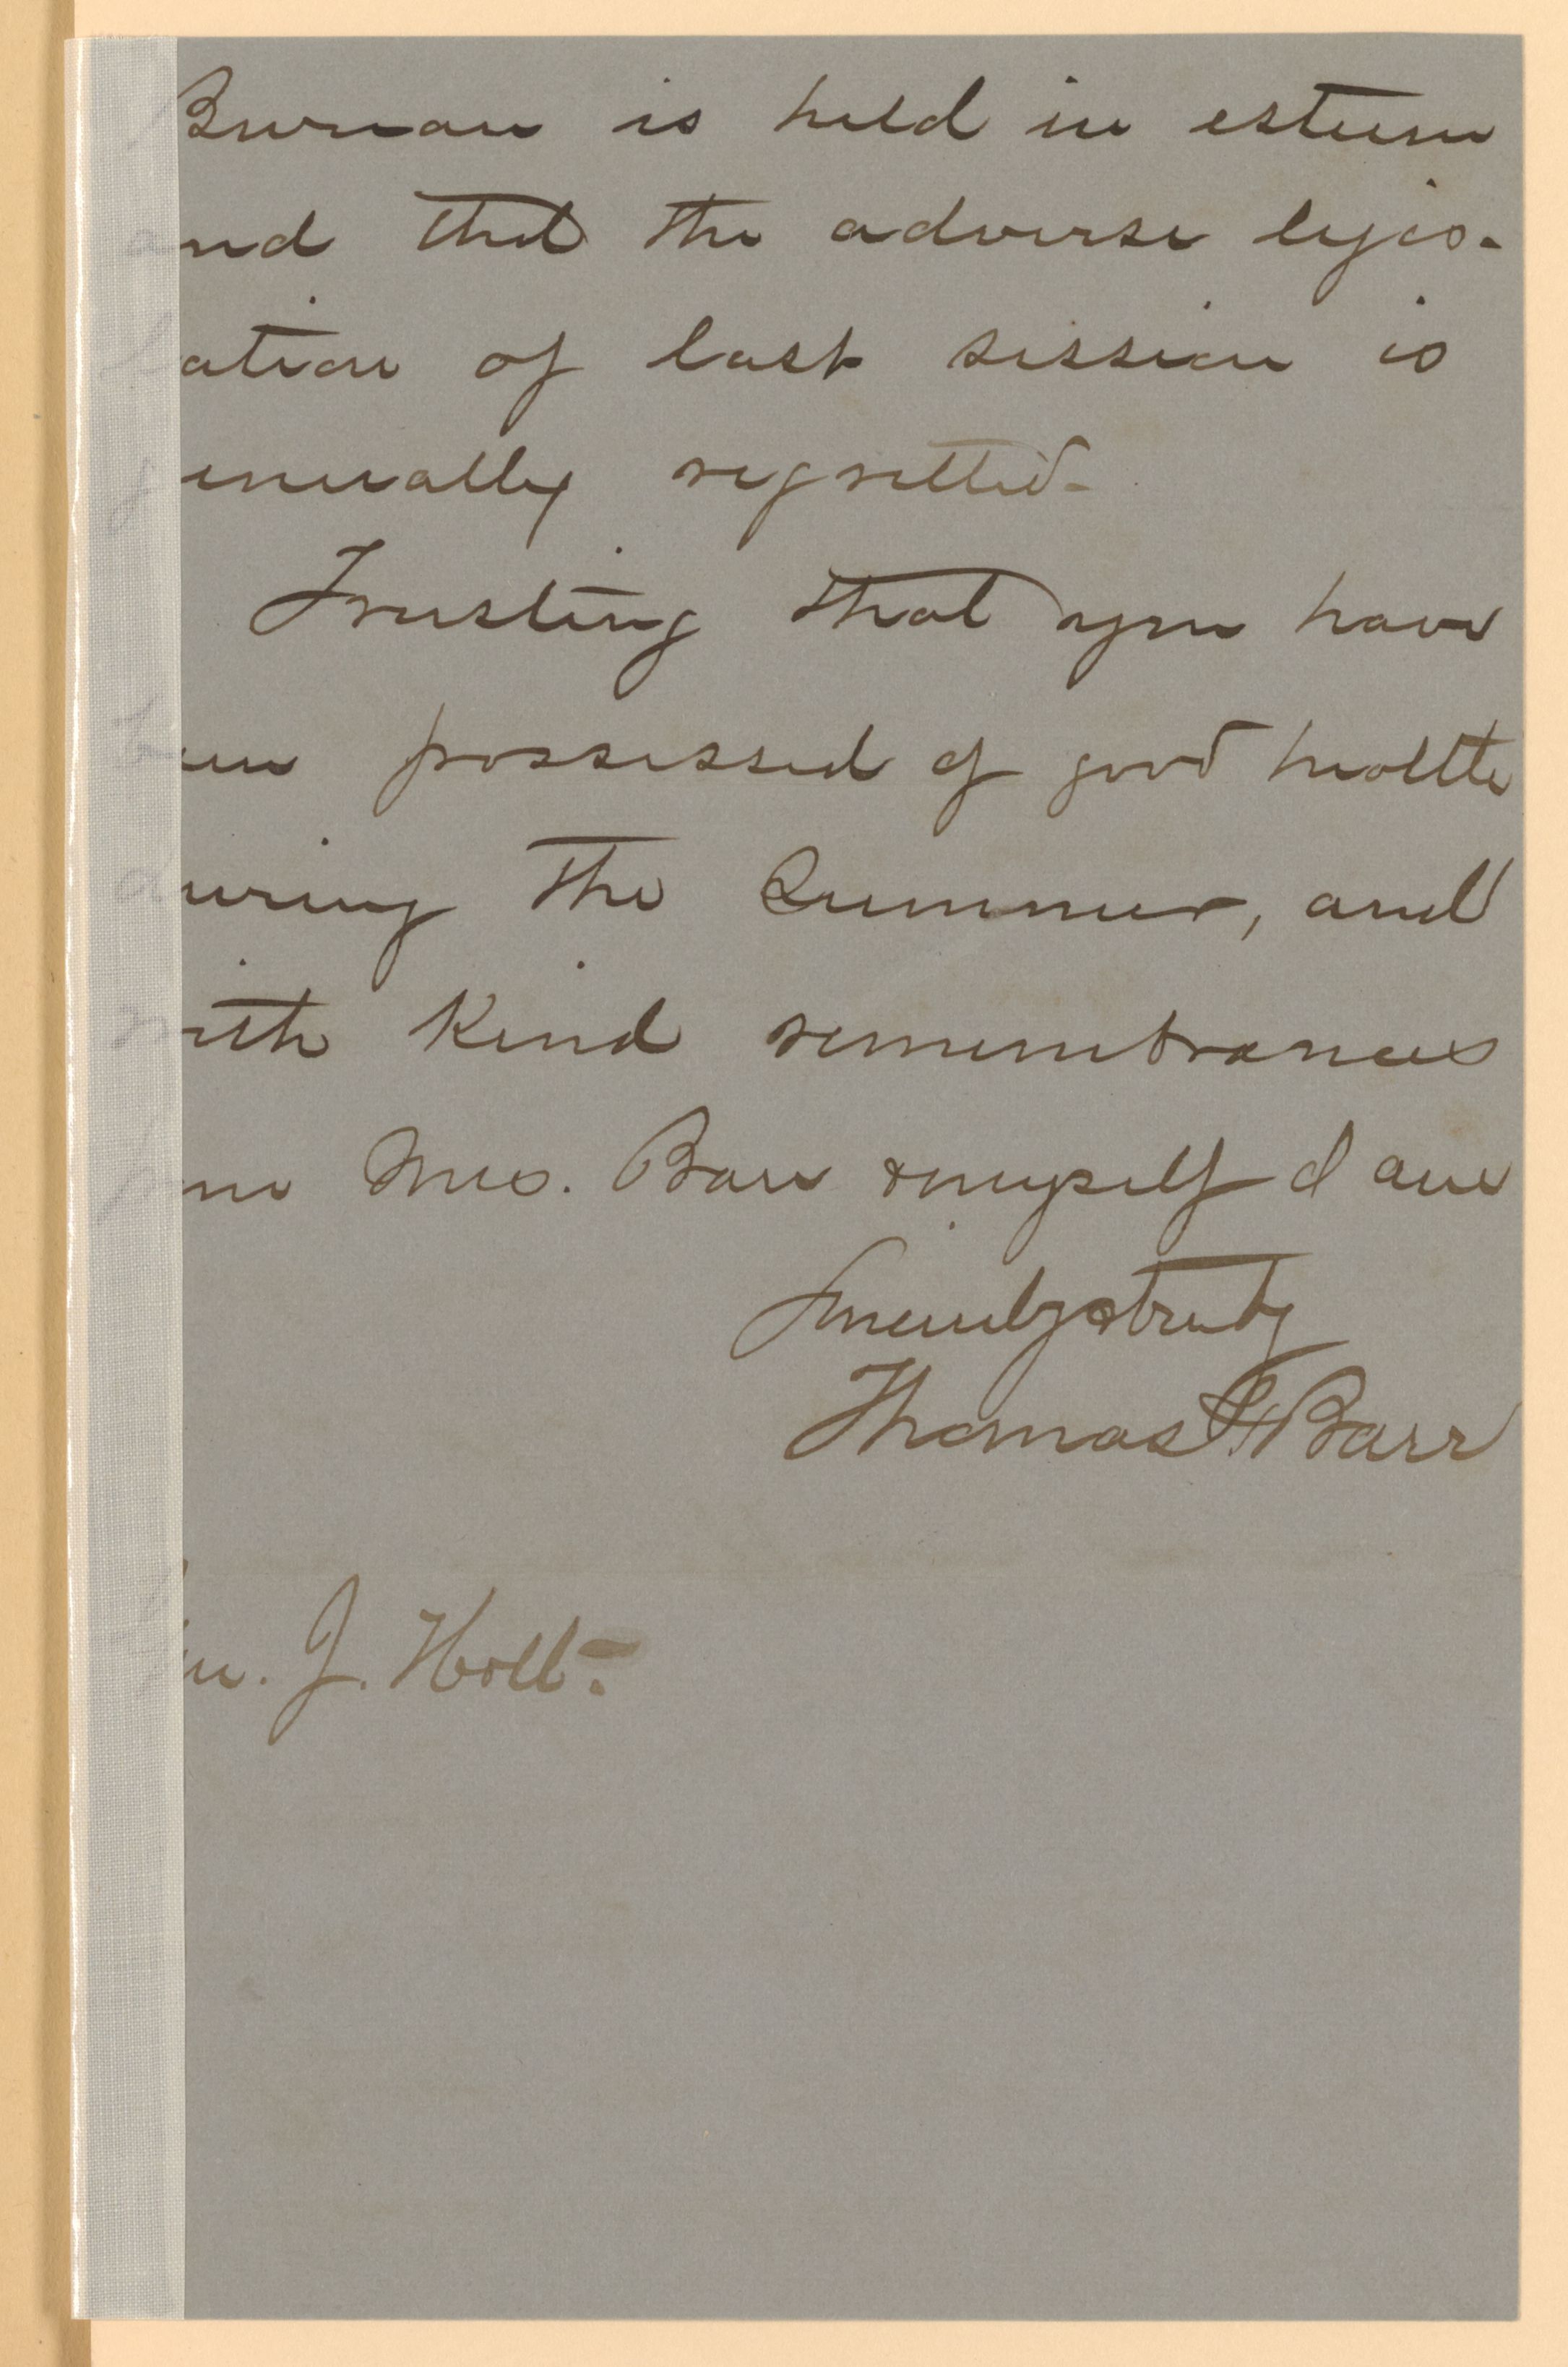 Bureau is held in esteem
and that the adverse legis-
lation of last session is
generally regretted-
Trusting that you have
been possessed of good health
during the Summer, and
with Kind remembrances
from Mrs. Barr & myself I am
Sincerely & truly
Thomas F. Barr
Gen. J. Holt-